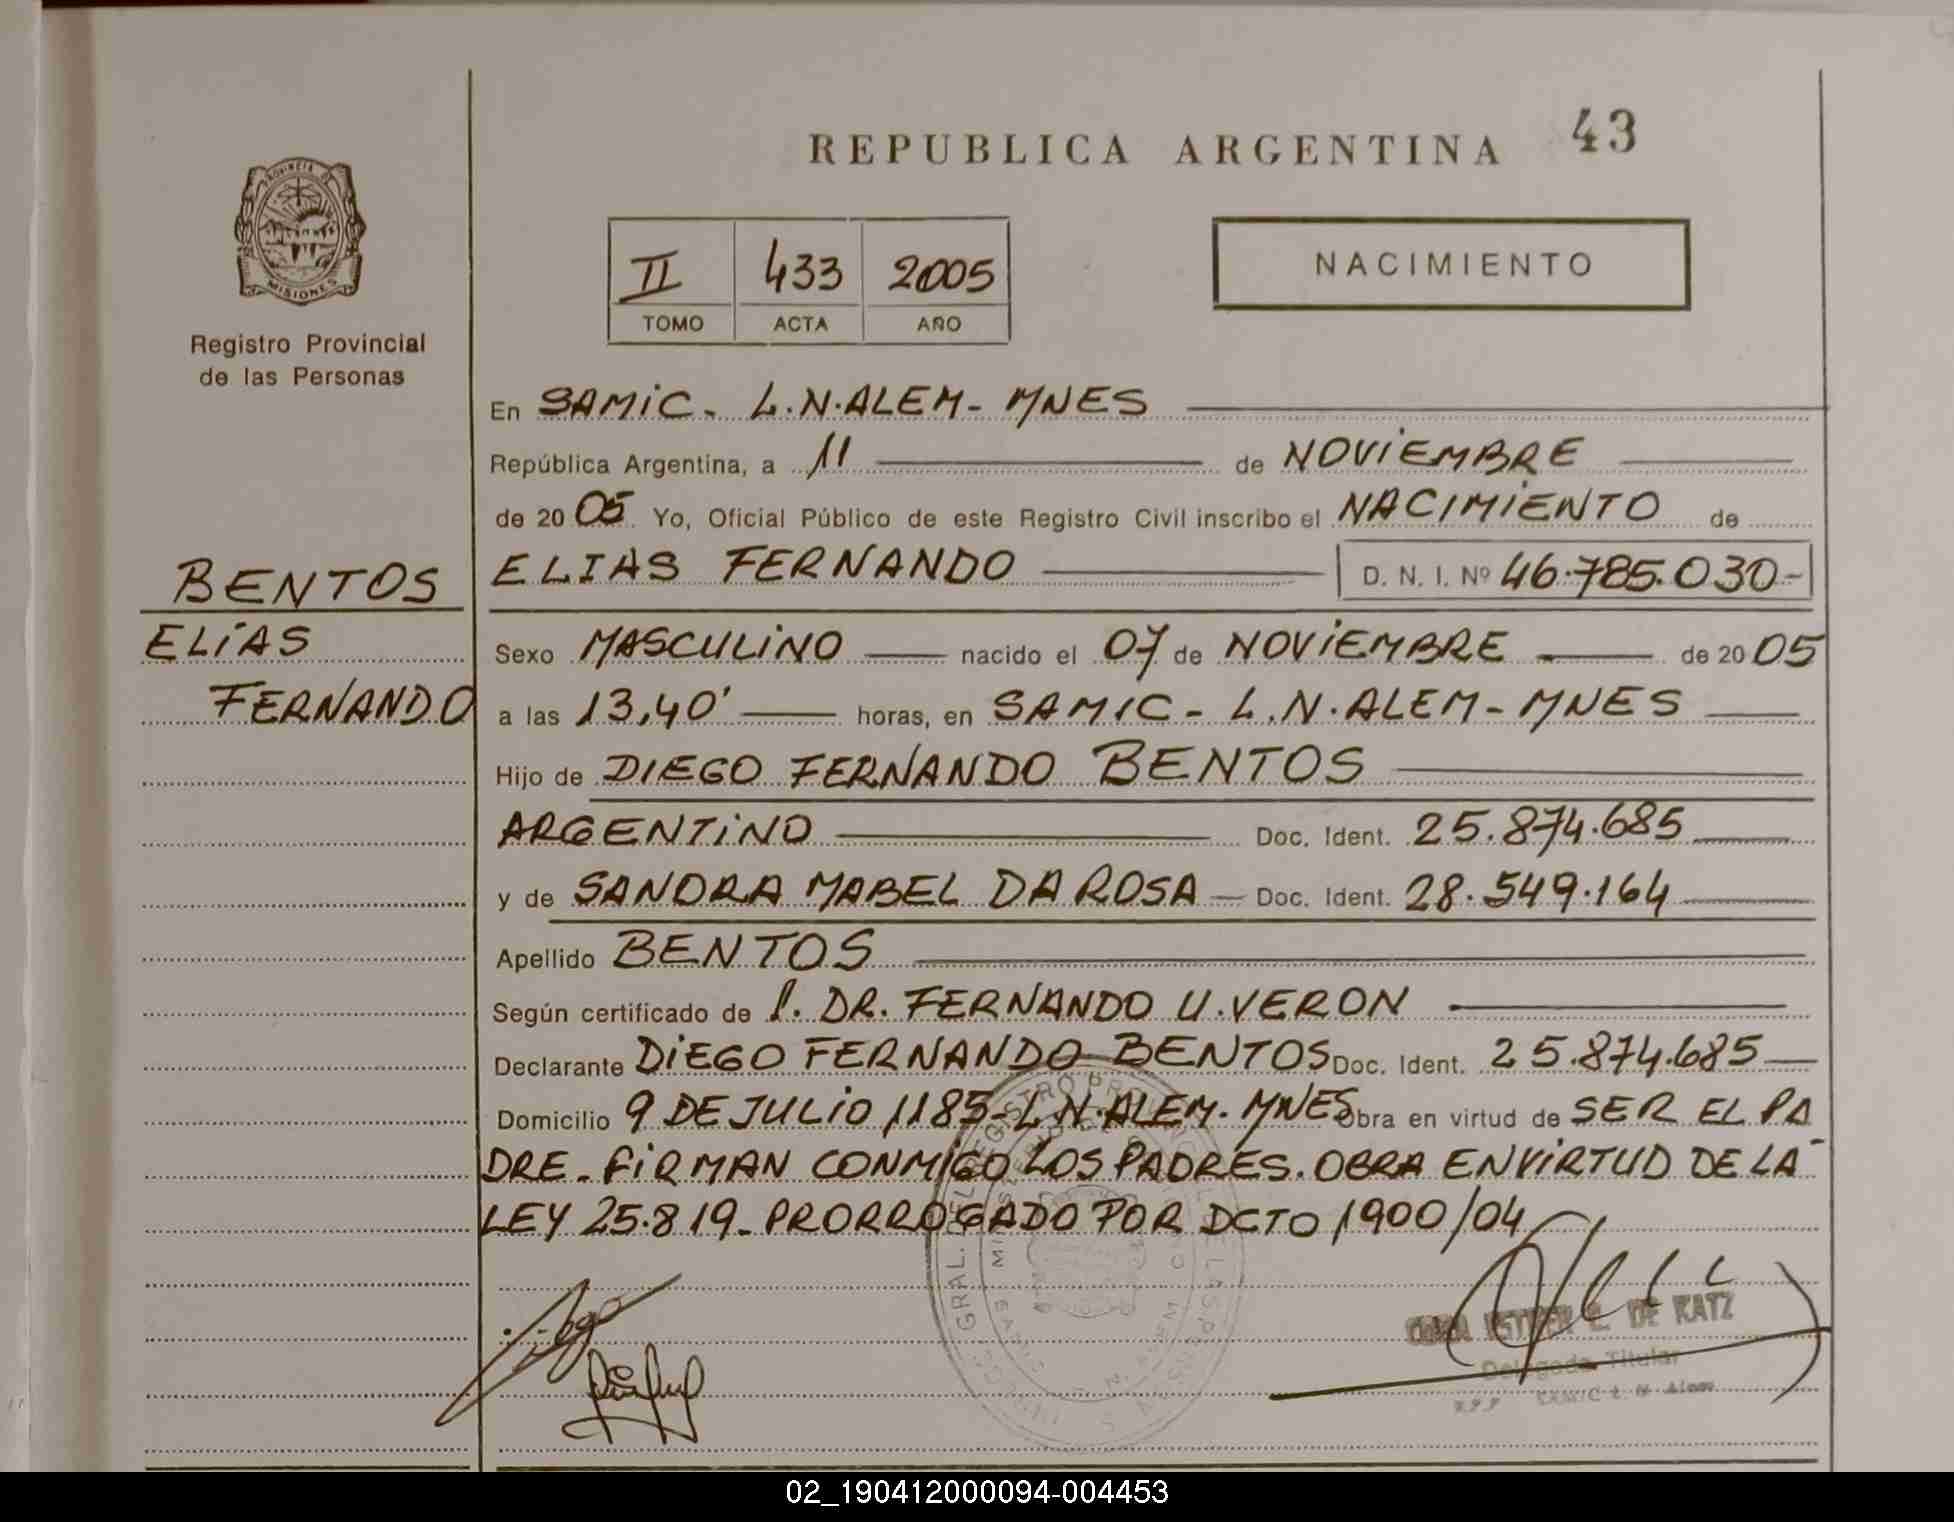 REPUBLICA ARGENTINA 43
PROVINCIA DE
MISIONES
Registro Provincial
de las Personas
II 433 2005
TOMO ACTA AÑO
NACIMIENTO
En SAMIC - L.N.ALEM - MNES
República Argentina, a 11 de NOVIEMBRE
de 2005 Yo, Oficial Público de este Registro Civil inscribo el NACIMIENTO de
BENTOS
ELIAS FERNANDO D. N. I. Nº 46.785.030-
ELÍAS
FERNANDO
Sexo MASCULINO nacido el 07 de NOVIEMBRE de 2005
a las 13,40' horas, en SAMIC - L.N.ALEM - MNES
Hijo de DIEGO FERNANDO BENTOS
ARGENTINO Doc. Ident. 25.874.685
y de SANDRA MABEL DA ROSA - Doc. Ident. 28.549.164
Apellido BENTOS
Según certificado de DR. FERNANDO U. VERON
Declarante DIEGO FERNANDO BENTOS Doc. Ident. 25.874.685
Domicilio 9 DE JULIO 1185 - L.N.ALEM - MNES Obra en virtud de SER EL PA
DRE - FIRMAN CONMIGO LOS PADRES. OBRA EN VIRTUD DE LA
LEY 25.819 - PRORROGADO POR DCTO 1900/04
ESTHER DE KATZ
Delegada Titular
02_190412000094-004453